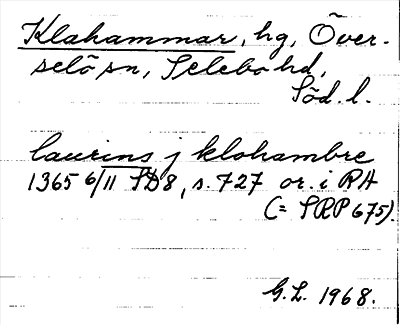 Klahammar, hg, Över-
selö sn, Selebo hd,
Söd. l.
laurins j klohambre
1365 6/11 SD8, s. 727 or. i RA
(= SRP 675).
G.L. 1968.